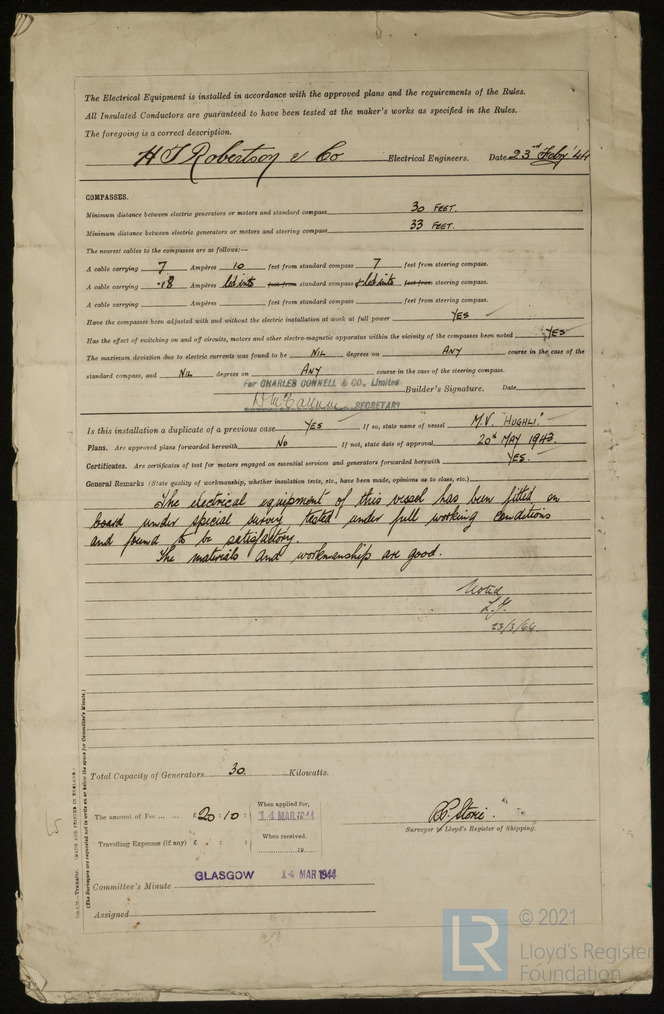 The Electrical Equipment is installed in accordance with the approved plans and the requirements of the Rules.
All Insulated Conductors are guaranteed to have been tested at the maker's works as specified in the Rules.
The foregoing is a correct description.
H J Robertson & Co Electrical Engineers. Date 23rd Feby '44
COMPASSES.
Minimum distance between electric generators or motors and standard compass 30 FEET.
Minimum distance between electric generators or motors and steering compass 33 FEET.
The nearest cables to the compasses are as follows:—
A cable carrying 7 Ampères 10 feet from standard compass 7 feet from steering compass.
A cable carrying ·18 Ampères led into feet from standard compass & led into feet from steering compass.
A cable carrying Ampères feet from standard compass feet from steering compass.
Have the compasses been adjusted with and without the electric installation at work at full power YES
Has the effect of switching on and off circuits, motors and other electro-magnetic apparatus within the vicinity of the compasses been noted YES
The maximum deviation due to electric currents was found to be NIL degrees on ANY course in the case of the
standard compass, and NIL degrees on ANY course in the case of the steering compass.
For CHARLES CONNELL & CO., Limited
Builder's Signature. Date
SECRETARY
Is this installation a duplicate of a previous case YES If so, state name of vessel M.V. "HUGHLI."
Plans. Are approved plans forwarded herewith No If not, state date of approval 20th MAY 1943.
Certificates. Are certificates of test for motors engaged on essential services and generators forwarded herewith YES.
General Remarks (State quality of workmanship, whether insulation tests, etc., have been made, opinions as to class, etc.)
The electrical equipment of this vessel has been fitted on
board under special survey tested under full working conditions
and found to be satisfactory.
The materials and workmanship are good.
Noted
23/3/44.
Total Capacity of Generators 30. Kilowatts.
The amount of Fee £20 : 10 :
When applied for,
14 MAR 1944
Travelling Expenses (if any) £ : :
When received.
19
R.C. Storie.
Surveyor to Lloyd's Register of Shipping.
Committee's Minute GLASGOW 14 MAR 1944
Assigned
(The Surveyors are requested not to write on or below the space for Committee's Minute.)
© 2021
Lloyd's Register
Foundation
LR